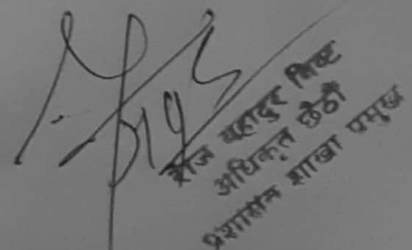 राज बहादुर विष्ट
अधिकृत छैठौं
प्रशासन शाखा प्रमुख